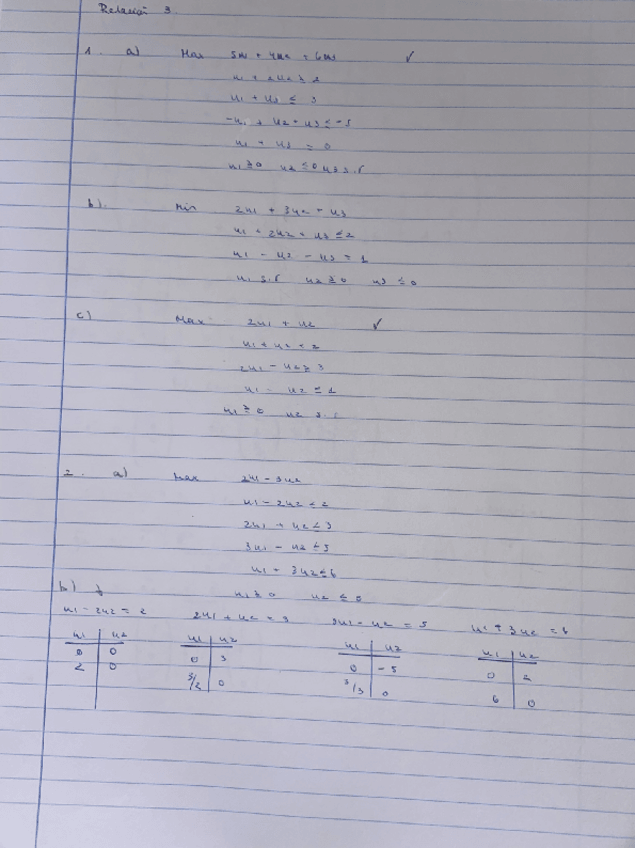 Relación 3.
1. a) Max 5u1 + 4u2 + 6u3 ✓
u1 + 2u2 ≥ 2
u1 + u3 ≤ 3
-u1 + u2 + u3 ≤ -5
u1 + u3 = 0
u1 ≥ 0 u2 ≤ 0 u3 s.r
b). Min 2u1 + 3u2 + u3
u1 + 2u2 + u3 ≤ 2
u1 - u2 - u3 = 1
u1 s.r u2 ≥ 0 u3 ≤ 0
c) Max 2u1 + u2 ✓
u1 + u2 = 2
2u1 - u2 ≥ 3
u1 - u2 ≤ 1
u1 ≥ 0 u2 s.r
2. a) Max 2u1 - 3u2
u1 - 2u2 ≤ 2
2u1 + u2 ≤ 3
3u1 - u2 ≤ 5
u1 + 3u2 ≤ 6
b) u1 ≥ 0 u2 ≤ 0
u1 - 2u2 = 2 2u1 + u2 = 3 3u1 - u2 = 5 u1 + 3u2 = 6
u1 u2 u1 u2 u1 u2 u1 u2
0 0 0 3 0 -5 0 2
2 0 3/2 0 5/3 0 6 0